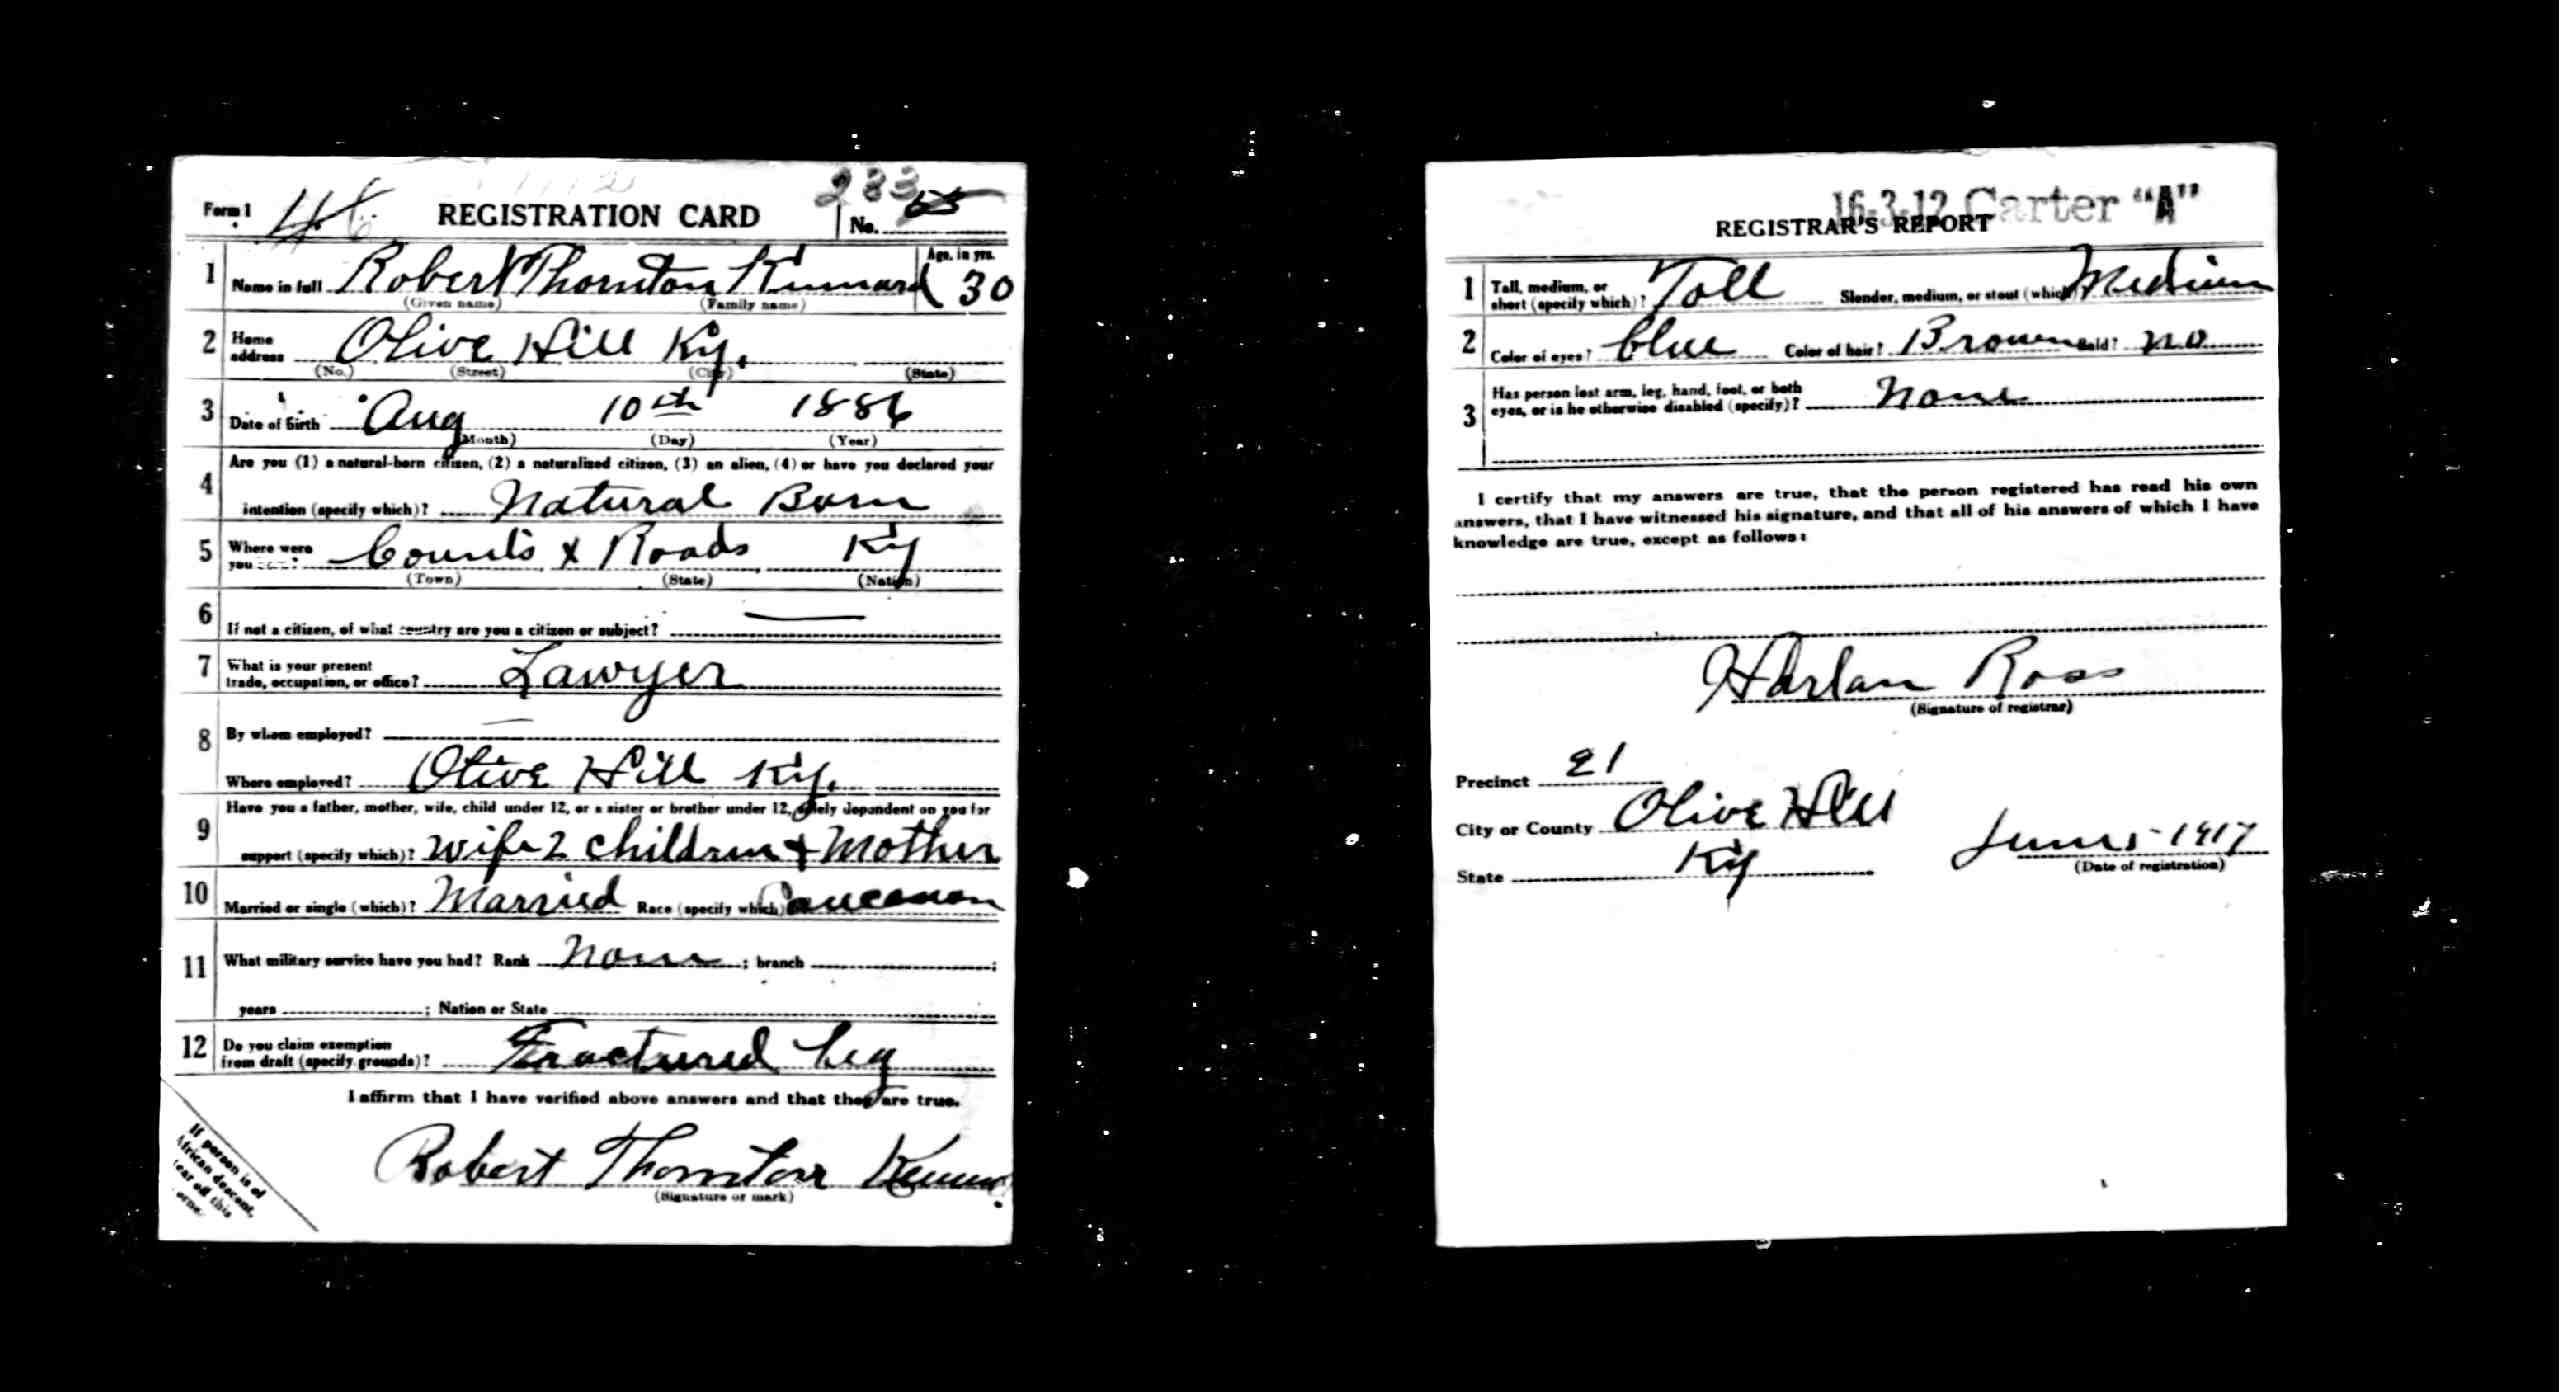 Form 1 46 REGISTRATION CARD No. 283 65
1 Name in full Robert Thornton Kinnard Age, in yrs. 30
(Given name) (Family name)
2 Home address Olive Hill Ky.
(No.) (Street) (City) (State)
3 Date of birth Aug 10th 1886
(Month) (Day) (Year)
4 Are you (1) a natural-born citizen, (2) a naturalized citizen, (3) an alien, (4) or have you declared your
intention (specify which)? Natural Born
5 Where were you Counts X Roads Ky
(Town) (State) (Nation)
6 If not a citizen, of what country are you a citizen or subject? —
7 What is your present
trade, occupation, or office? Lawyer
8 By whom employed? —
Where employed? Olive Hill Ky.
9 Have you a father, mother, wife, child under 12, or a sister or brother under 12, solely dependent on you for
support (specify which)? Wife 2 children + Mother
10 Married or single (which)? Married Race (specify which) Caucasian
11 What military service have you had? Rank None ; branch ;
years ; Nation or State
12 Do you claim exemption
from draft (specify grounds)? Fractured Leg
I affirm that I have verified above answers and that they are true.
Robert Thornton
(Signature or mark)
If person is of
African descent,
tear off this
corner.
16-3-12 Carter "A"
REGISTRAR'S REPORT
1 Tall, medium, or
short (specify which)? Tall Slender, medium, or stout (which) Medium
2 Color of eyes? blue Color of hair? Brown Bald? no
3 Has person lost arm, leg, hand, foot, or both
eyes, or is he otherwise disabled (specify)? None
I certify that my answers are true, that the person registered has read his own
answers, that I have witnessed his signature, and that all of his answers of which I have
knowledge are true, except as follows:
Harlan Ross
(Signature of registrar)
Precinct 21
City or County Olive Hill
State Ky June 5 - 1917
(Date of registration)